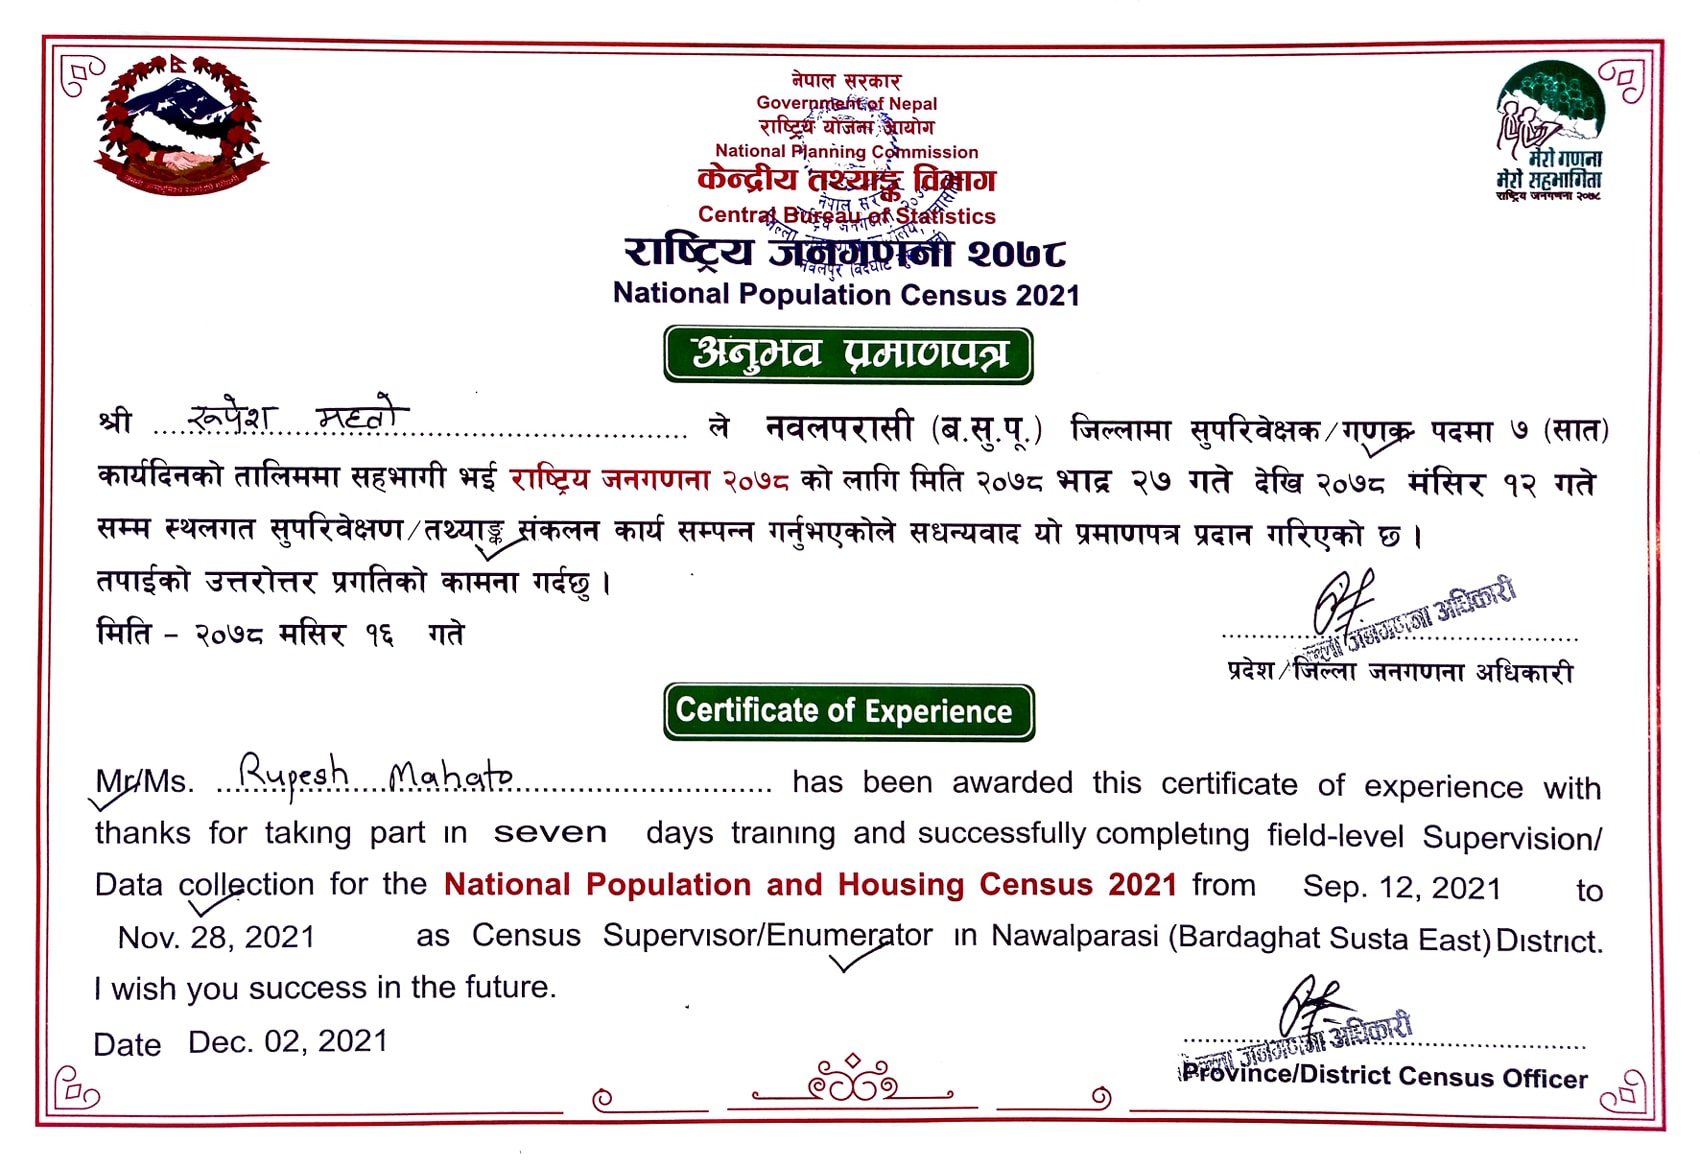 नेपाल सरकार
Government of Nepal
राष्ट्रिय योजना आयोग
National Planning Commission
केन्द्रीय तथ्याङ्क विभाग
Central Bureau of Statistics
राष्ट्रिय जनगणना २०७८
National Population Census 2021
मेरो गणना
मेरो सहभागिता
राष्ट्रिय जनगणना २०७८
अनुभव प्रमाणपत्र
श्री रूपेश महतो ले नवलपरासी (ब.सु.पू.) जिल्लामा सुपरिवेक्षक/गणक पदमा ७ (सात)
कार्यदिनको तालिममा सहभागी भई राष्ट्रिय जनगणना २०७८ को लागि मिति २०७८ भाद्र २७ गते देखि २०७८ मंसिर १२ गते
सम्म स्थलगत सुपरिवेक्षण/तथ्याङ्क संकलन कार्य सम्पन्न गर्नुभएकोले सधन्यवाद यो प्रमाणपत्र प्रदान गरिएको छ ।
तपाईको उत्तरोत्तर प्रगतिको कामना गर्दछु ।
मिति - २०७८ मसिर १६ गते
जिल्ला जनगणना अधिकारी
प्रदेश/जिल्ला जनगणना अधिकारी
Certificate of Experience
Mr/Ms. Rupesh Mahato has been awarded this certificate of experience with
thanks for taking part in seven days training and successfully completing field-level Supervision/
Data collection for the National Population and Housing Census 2021 from Sep. 12, 2021 to
Nov. 28, 2021 as Census Supervisor/Enumerator in Nawalparasi (Bardaghat Susta East) District.
I wish you success in the future.
Date Dec. 02, 2021
जिल्ला जनगणना अधिकारी
Province/District Census Officer